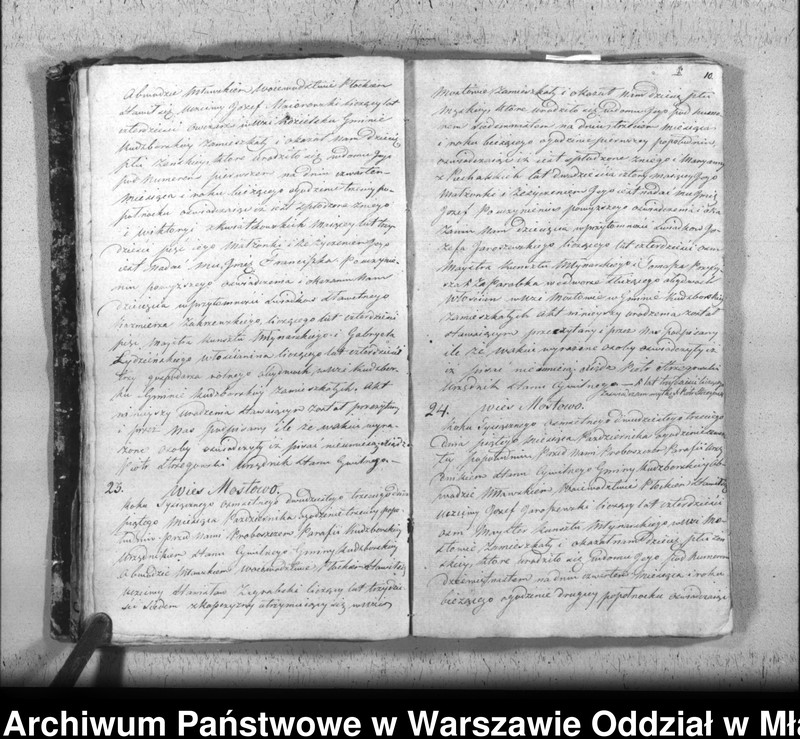 Obwodzie Mławskim Województwie Płockim
stawił się uczciwy Jozef liczący lat
czterdzieści we wsi Gminie
Kudzborskiey zamieszkały i okazał Nam dziecię
płci Żenskiey, które urodziło się w domu Jego
pod Numerem pierwszem na dniu czwartem
miesiąca i roku bieżącego o godzinie trzeciey po
południu oswiadczaiąc iż iest spłodzone z niego
i Wiktoryi z Kwiatkowskich maiącey lat trzy
dzieści pięć iego Małżonki i że życzeniem Jego
iest nadać mu Jmię Franciszka Po uczynie
niu powyższego oswiadczenia i okazaniu Nam
dziecięcia w przytomności Swiadków Sławetnego
Kazimierza Zakrzewskiego, liczącego lat czterdzieści
pięć, Maystra Kunsztu Młynarskiego i Gabryela
włościanina liczącego lat czterdzieści
trzy gospodarza rolnego obydwoch w wsi Kudzbor
ku Gminie Kudzborskiey zamieszkałych. Akt
ninieyszy urodzenia stawaiącym został przeczytany
i przez Nas podpisany ile że wskutek wyra
żone osoby oswiadczyły iż pisać nieumieią
Urzędnik Stanu Cywilnego.
23. Wies Mostowo.
Roku Tysiącznego osmsetnego dwudziestego trzeciego dnia
piątego Miesiąca Pazdziernika o godzinie trzeciey popo
łudniu przed Nami Proboszczem Parafii Kudzborskiey
Urzędnikiem Stanu Cywilnego Gminy Kudzborskiey
Obwodzie Mławskim Województwie Płockim stawił się
uczciwy Stanisław liczący lat trzydzie
ści Siedem utrzymuiący się w wsi
10.
Mostowie zamieszkały i okazał Nam dziecię płci
Męskiey, które urodziło się w domu Jego pod Nume
rem na dniu trzecim miesiąca
i roku bieżącego o godzinie pierwszey popołudniu,
oswiadczaiąc iż iest spłodzone z niego i Maryanny
z Puchalskich lat dwadzieścia cztery maiącey Jego
Małżonki i że życzeniem Jego iest nadać mu Jmię
Jozef Po uczynieniu powyższego oswiadczenia i oka
zaniu Nam dziecięcia w przytomności Swiadków Jo
zefa Jaroszewskiego liczącego lat czterdzieści osm
Maystra Kunsztu Młynarskiego i Tomasza
Parobka we dworze służącego obydwoch
w wsi Mostowie w Gminie Kudzborskiey
zamieszkałych Akt ninieyszy urodzenia został
stawaiącym przeczytany i przez Nas podpisany
ile że wskutek wyrażone osoby oswiadczyły iż
iż pisać nieumieią
Urzędnik Stanu Cywilnego
24. Wies Mostowo.
Roku Tysiącznego osmsetnego dwudziestego trzeciego
dnia piątego Miesiąca Pazdziernika o godzinie
popołudniu, Przed Nami Proboszczem Parafii Urzę
dnikiem Stanu Cywilnego Gminy Kudzborskiey Ob
wodzie Mławskim, Województwie Płockim stawił się
uczciwy Jozef Jaroszewski liczący lat czterdzieści
osm Maystr Kunsztu Młynarskiego, w wsi Mo
stowie zamieszkały i okazał Nam dziecię płci Żen
skiey, które urodziło się w domu Jego pod Numerem
na dniu czwartem Miesiąca i roku
bieżącego o godzinie drugiey popołudniu oswiadczaiąc
Archiwum Państwowe w Warszawie Oddział w Mła